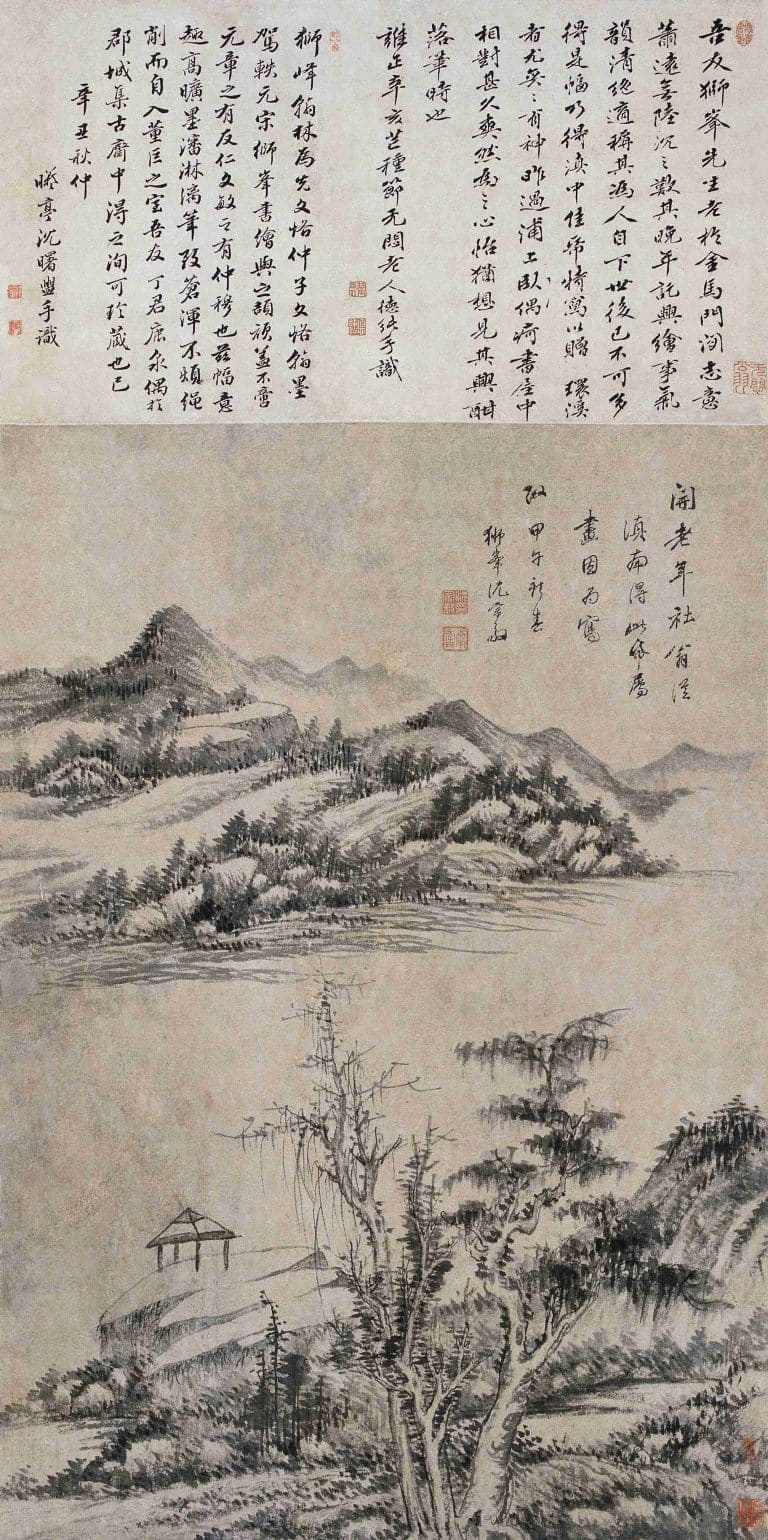 吾友獅峯先生老於金馬門澗志意
蕭遠喜陸沉之歎其晚年託興繪事氣
韻清絕適稱其為人自下世後已不可多
得是幅乃得滇中佳帋情寫以贈 環溪
者尤奕〻有神昨過浦上臥偶齋書屋中
相對甚久爽然為之心怡猶想見其興酣
落筆時也
雍正辛亥芒種節无悶老人手識
獅峰翰林為先文恪仲子文恪翰墨
駕軼元宗獅峯書繪與之頡頏盖不啻
元章之有友仁文敏之有仲穆也茲幅意
趣高曠墨瀋淋漓筆致蒼渾不煩繩
削而自入董巨之室吾友丁君鹿泉偶於
郡城集古齋中得之洵可珍藏也已
辛丑秋仲
曦亭沈曙豐手識
開老年社翁從
滇南得此帋屬
畫因為寫
政甲午新春
獅峯沈宗敬